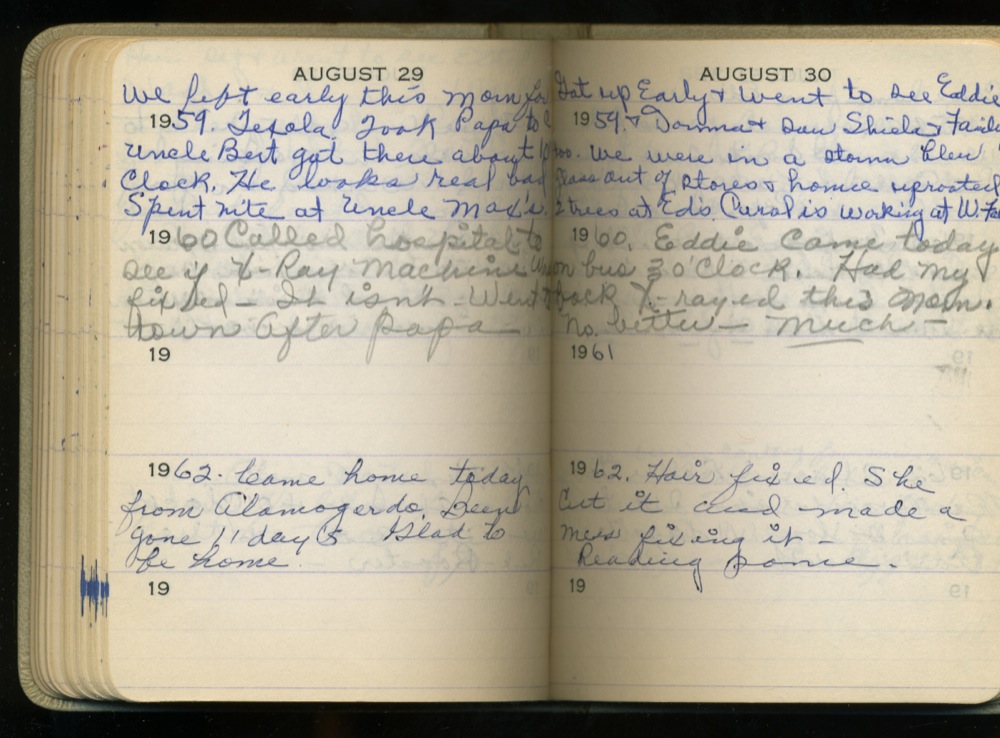 AUGUST 29
We left early this morn for
1959. Texola. Took Papa to
Uncle Bert got there about 10
Clock. He looks real bad
Spent nite at Uncle Mac's.
1960 Called hospital to
see if X-Ray Machine was
fixed - It isn't - Went to
town after papa -
19
1962. Came home today
from Alamogerdo. Been
gone 11 days Glad to
be home.
19
AUGUST 30
Got up Early & went to see Eddie
1959. & Donna & Dan Shields Family
too. We were in a storm blew
glass out of stores & homes uprooted
2 trees at Ed's. Carol is working at
1960. Eddie came today
on bus 3 o'Clock. Had my
back X-rayed this morn.
No better - much -
1961
1962. Hair fixed. She
Cut it and made a
mess fixing it -
Reading some.
19